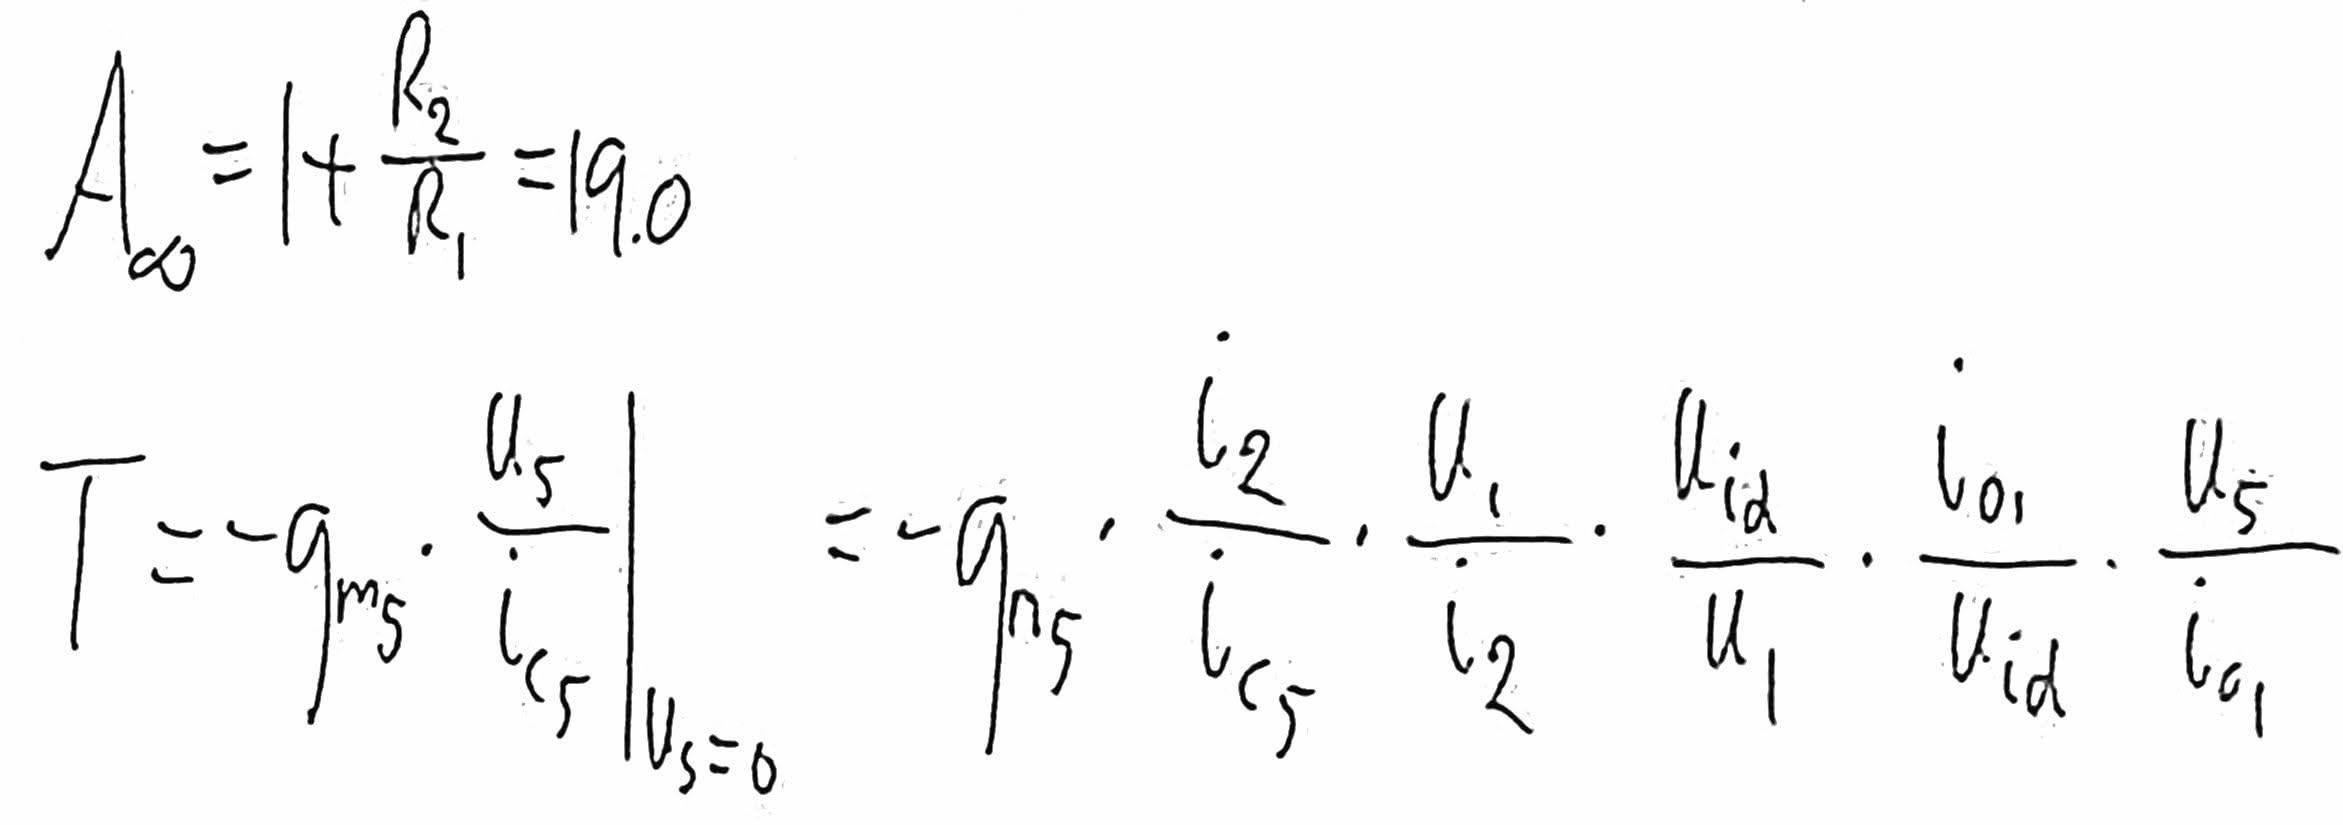 A∞ = 1 + R₂/R₁ = 19.0
T = -gm5 · u5/ic5 |us=0 = -gm5 · i2/ic5 · u1/i2 · uid/u1 · io1/uid · u5/io1